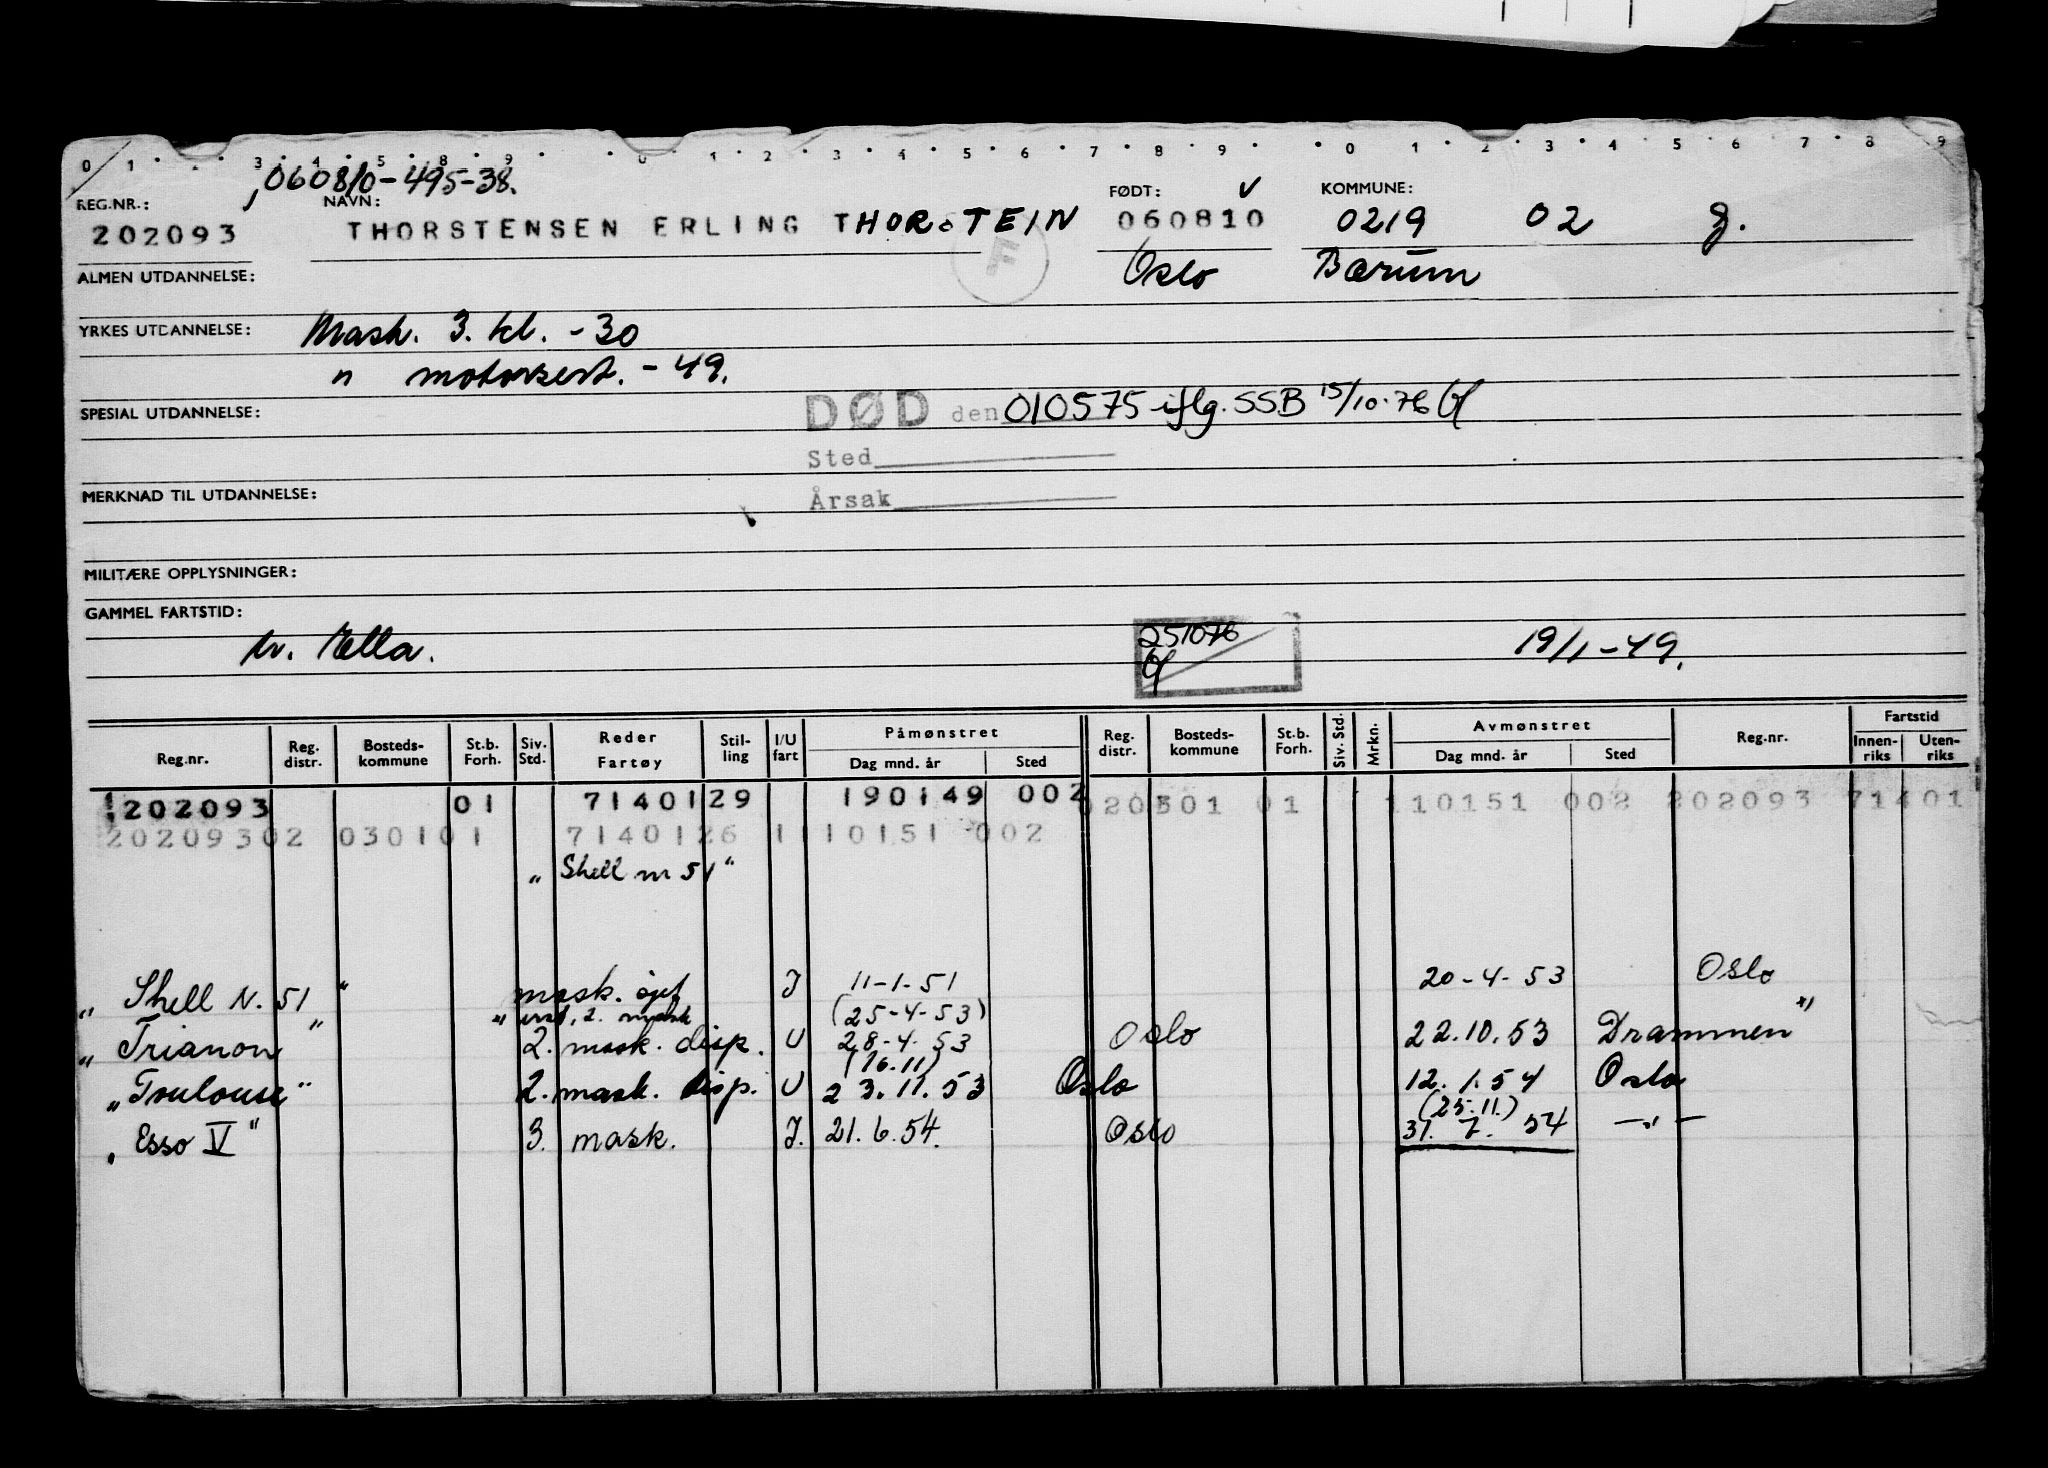 0 1 3 4 5 8 9 0 1 2 3 4 5 6 7 8 9 0 1 2 3 4 5 6 7 8 9
060810-495-38.
REG.NR.: NAVN: FØDT: V KOMMUNE:
202093 THORSTENSEN ERLING THORSTEIN 060810 0219 02 g.
Oslo Bærum
ALMEN UTDANNELSE:
YRKES UTDANNELSE: Mask. 3. kl. -30
" motorsert. -49.
SPESIAL UTDANNELSE: DØD den 010575 iflg. SSB 15/10-76
Sted
MERKNAD TIL UTDANNELSE: Årsak
MILITÆRE OPPLYSNINGER:
GAMMEL FARTSTID:
Ella. 251076 19/1-49.
Reg.nr. Reg. distr. Bosteds-kommune St.b. Forh. Siv. Std. Reder Fartøy Stil-ling I/U fart Påmønstret Dag mnd. år Sted Reg. distr. Bosteds-kommune St.b. Forh. Siv. Std. Mrkn. Avmønstret Dag mnd. år Sted Reg.nr. Fartstid Innen-riks Uten-riks
202093 01 7140129 190149 002 020301 01 110151 002 202093 71401
20209302 030101 7140126 1110151 002
"Shell nr 51"
"Shell N. 51" mask. sjef J 11-1-51 20-4-53 Oslo
" 2. mask (25-4-53) "
"Trianon" 2. mask. disp. U 28-4-53 Oslo 22.10.53 Drammen
(16.11)
"Toulouse" 2. mask. disp. U 23.11.53 Oslo 12.1.54 Oslo
(25.11.)
"Esso V" 3. mask. J. 21.6.54. Oslo 31.7.54 -"-